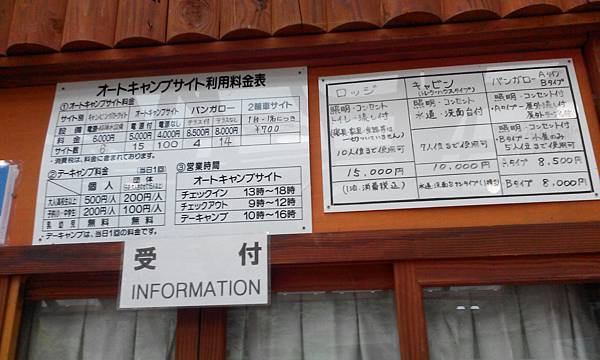 オートキャンプサイト利用料金表
①オートキャンプサイト料金
サイト別 キャンピングカーサイト オートキャンプサイト バンガロー 2輪車サイト
設備 電源・給排水設備 電源付 電源なし テラス付 テラスなし 1台・1張につき
料金 6,000円 5,000円 4,000円 8,500円 8,000円 ¥700
サイト数 6 15 100 4 14
・消費税は、料金に含まれております。
②デーキャンプ料金 (当日1回)
個人 団体
大人(高校生以上) 500円/人 200円/人
子供(小・中学生) 200円/人 100円/人
乳幼児 無料 無料
・デーキャンプは、当日1回の料金です。
③営業時間
オートキャンプサイト
チェックイン 13時〜18時
チェックアウト 9時〜12時
デーキャンプ 10時〜16時
ロッジ
照明・コンセント
トイレ・流し付
10人位まで使用可
15,000円
(1泊、消費税込)
キャビン
(トレーラーハウスタイプ)
照明・コンセント
水道・洗面台付
7人位まで使用可
10,000円
バンガロー Aタイプ Bタイプ
照明・コンセント
・Aタイプ-屋外流し付
屋外テラス付
・Bタイプ-小屋のみ
5人位まで使用可
Aタイプ 8,500円
Bタイプ 8,000円
受付
INFORMATION